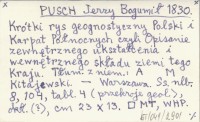 PUSCH Jerzy Bogumił 1830.
Krótki rys geognostyczny Polski i
Karpat Północnych czyli Opisanie
zewnętrznego ukształtenia i
wewnętrznego składu ziemi tego
Kraju. Tłum: z niem. A M
Kitajewski — Warszawa Ss. nlb.
8, 104, tabl. 4 (przekroje geol.),
cm 23 x 13. □ MT, WHP.